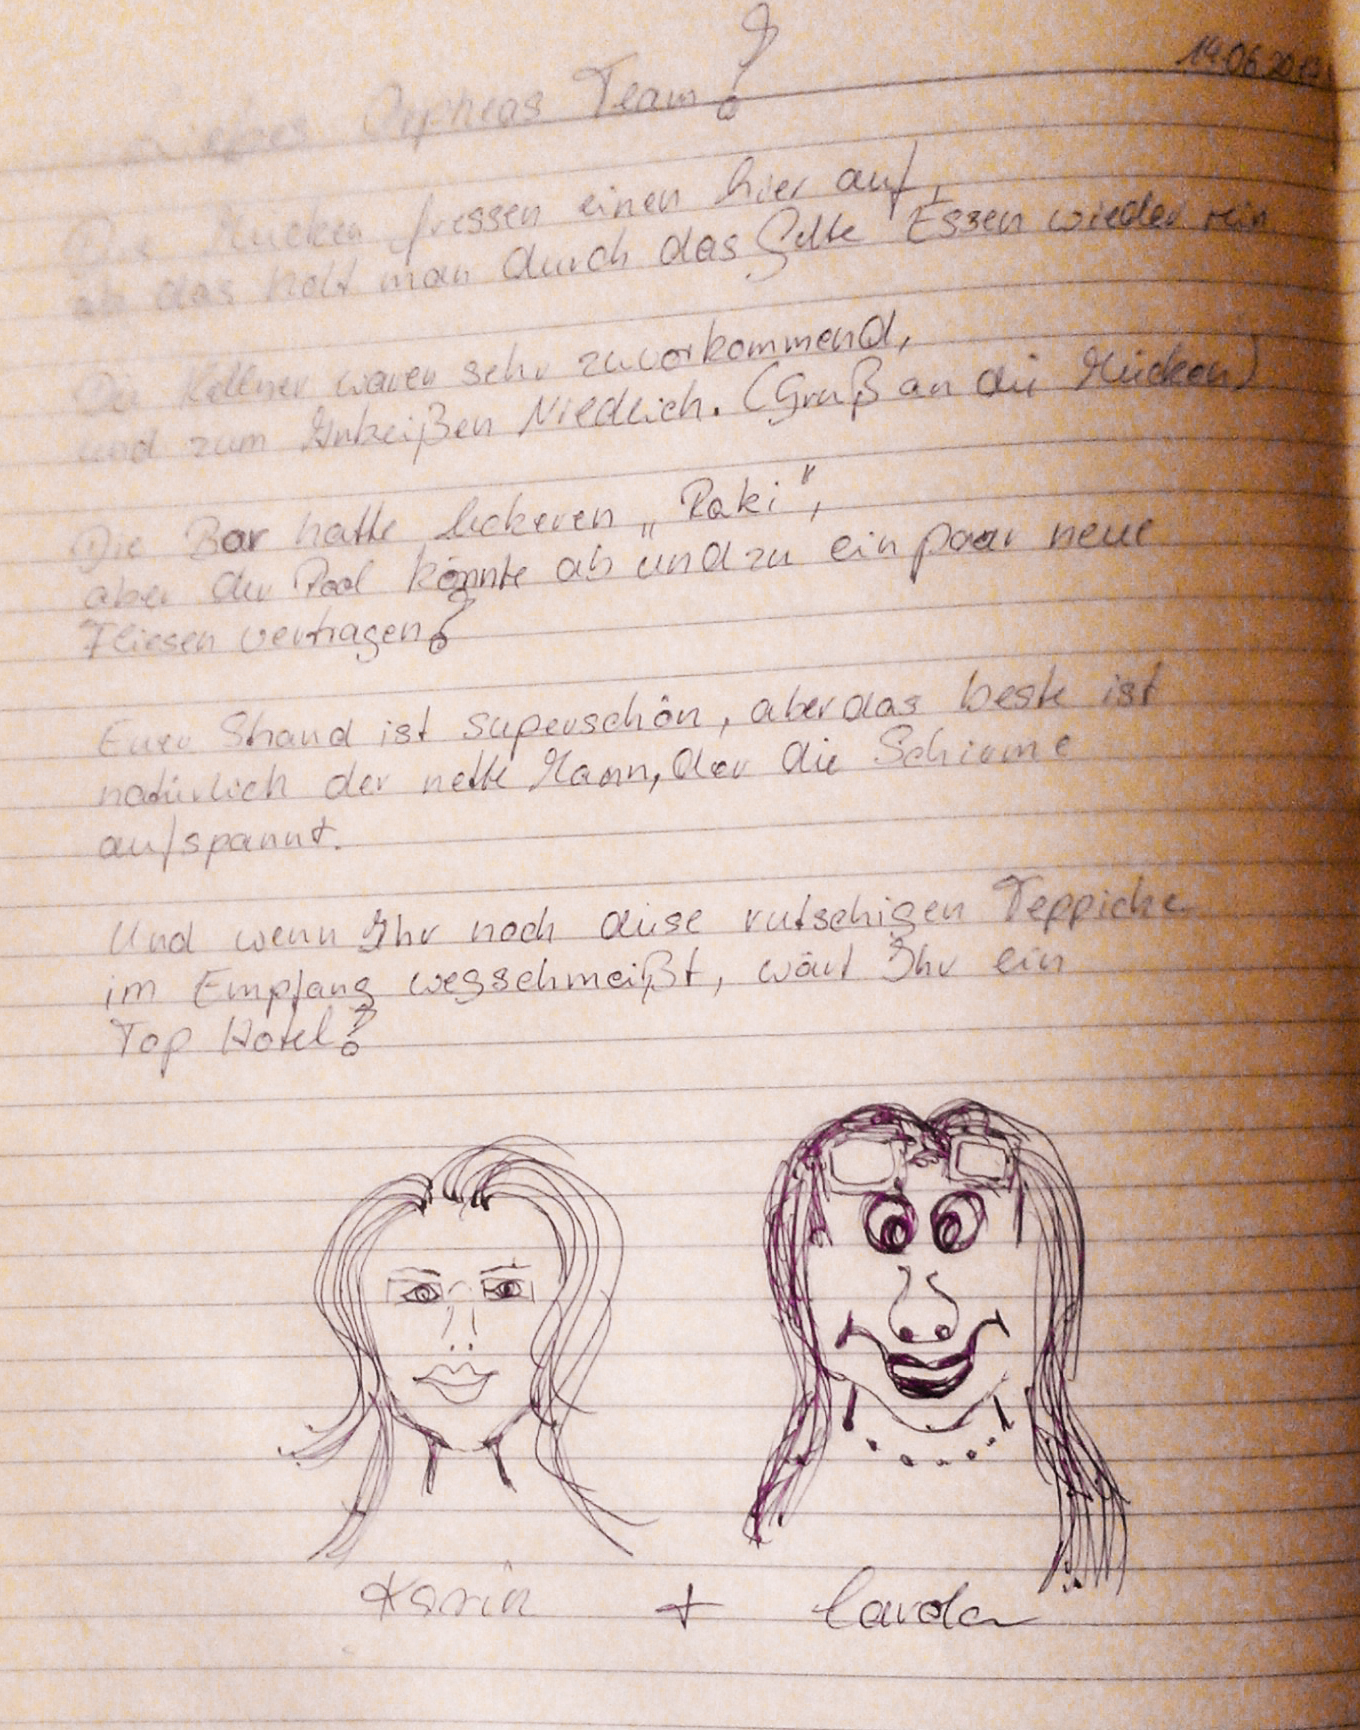 14.06.20
Liebes Orpheas Team!
Die Mücken fressen einen hier auf,
ab das holt man durch das Gute Essen wieder rein
Die Kellner waren sehr zuvorkommend,
und zum Anbeißen Niedlich. (Gruß an die Mücken)
Die Bar hatte leckeren „Raki",
aber der Pool könnte ab und zu ein paar neue
Fliesen vertragen!
Euer Strand ist superschön, aber das beste ist
natürlich der nette Mann, der die Schirme
aufspannt.
Und wenn Ihr noch diese rutschigen Teppiche
im Empfang wegschmeißt, wärt Ihr ein
Top Hotel!
Karin + Carola